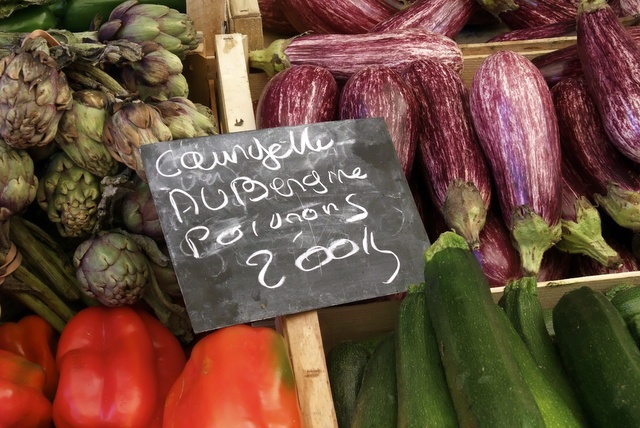 Courgette
AUBergine
Poivrons
2.00 K